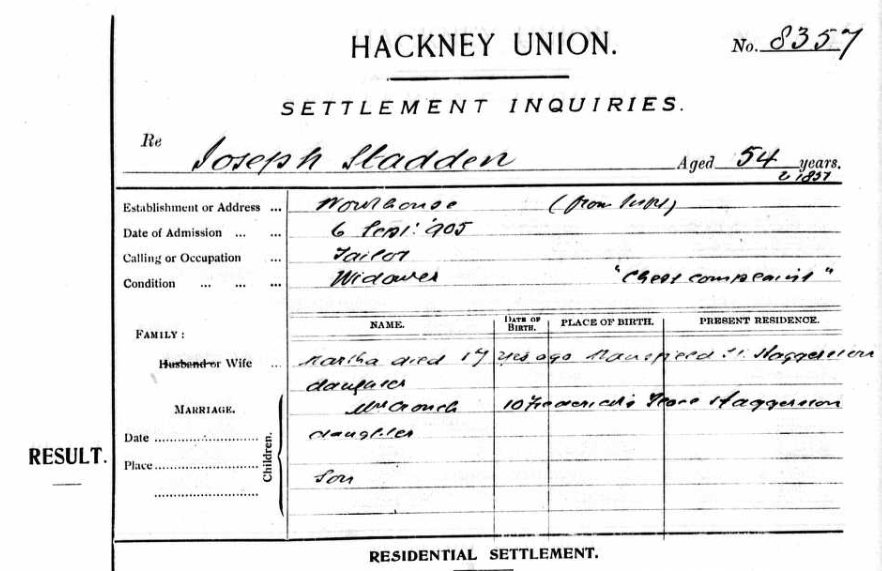 HACKNEY UNION.
No. 8357
SETTLEMENT INQUIRIES.
Re Joseph Stadden Aged 54 years.
1851
Establishment or Address ... Workhouse (from
Date of Admission ... ... 6 Sept: '905
Calling or Occupation ... Tailor
Condition ... ... ... Widower "Chest complaint"
FAMILY:
NAME. DATE OF BIRTH. PLACE OF BIRTH. PRESENT RESIDENCE.
Husband or Wife ... Martha died 17 yrs ago Mansfield St. Haggerston
daughter
MARRIAGE. Mrs Crouch 10 Frederick's Place Haggerston
Date daughter
Children.
RESULT.
Place Son
RESIDENTIAL SETTLEMENT.